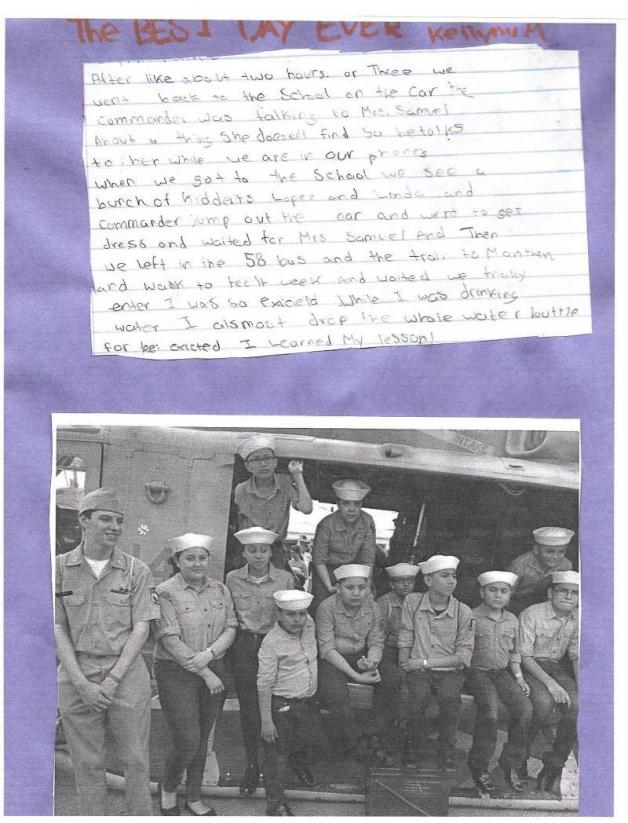 The BEST DAY EVER Keilymar M
After like about two hours or Three we
went back to the School on the Car the
Commander was talking to Mrs. Samuel
About a thing She doesen't find So he talks
to her while we are in our phones
when we got to the School we see a
burch of Kiddeits Lopez and Linda and
Commander jump out the car and went to get
dress and waited for Mrs Samuel And Then
we left in the 58 bus and the train to
and walk to week And waited we finally
enter I was so While I was drinking
water I alsmost drop the whole water buttle
for be I Learned My lesson!